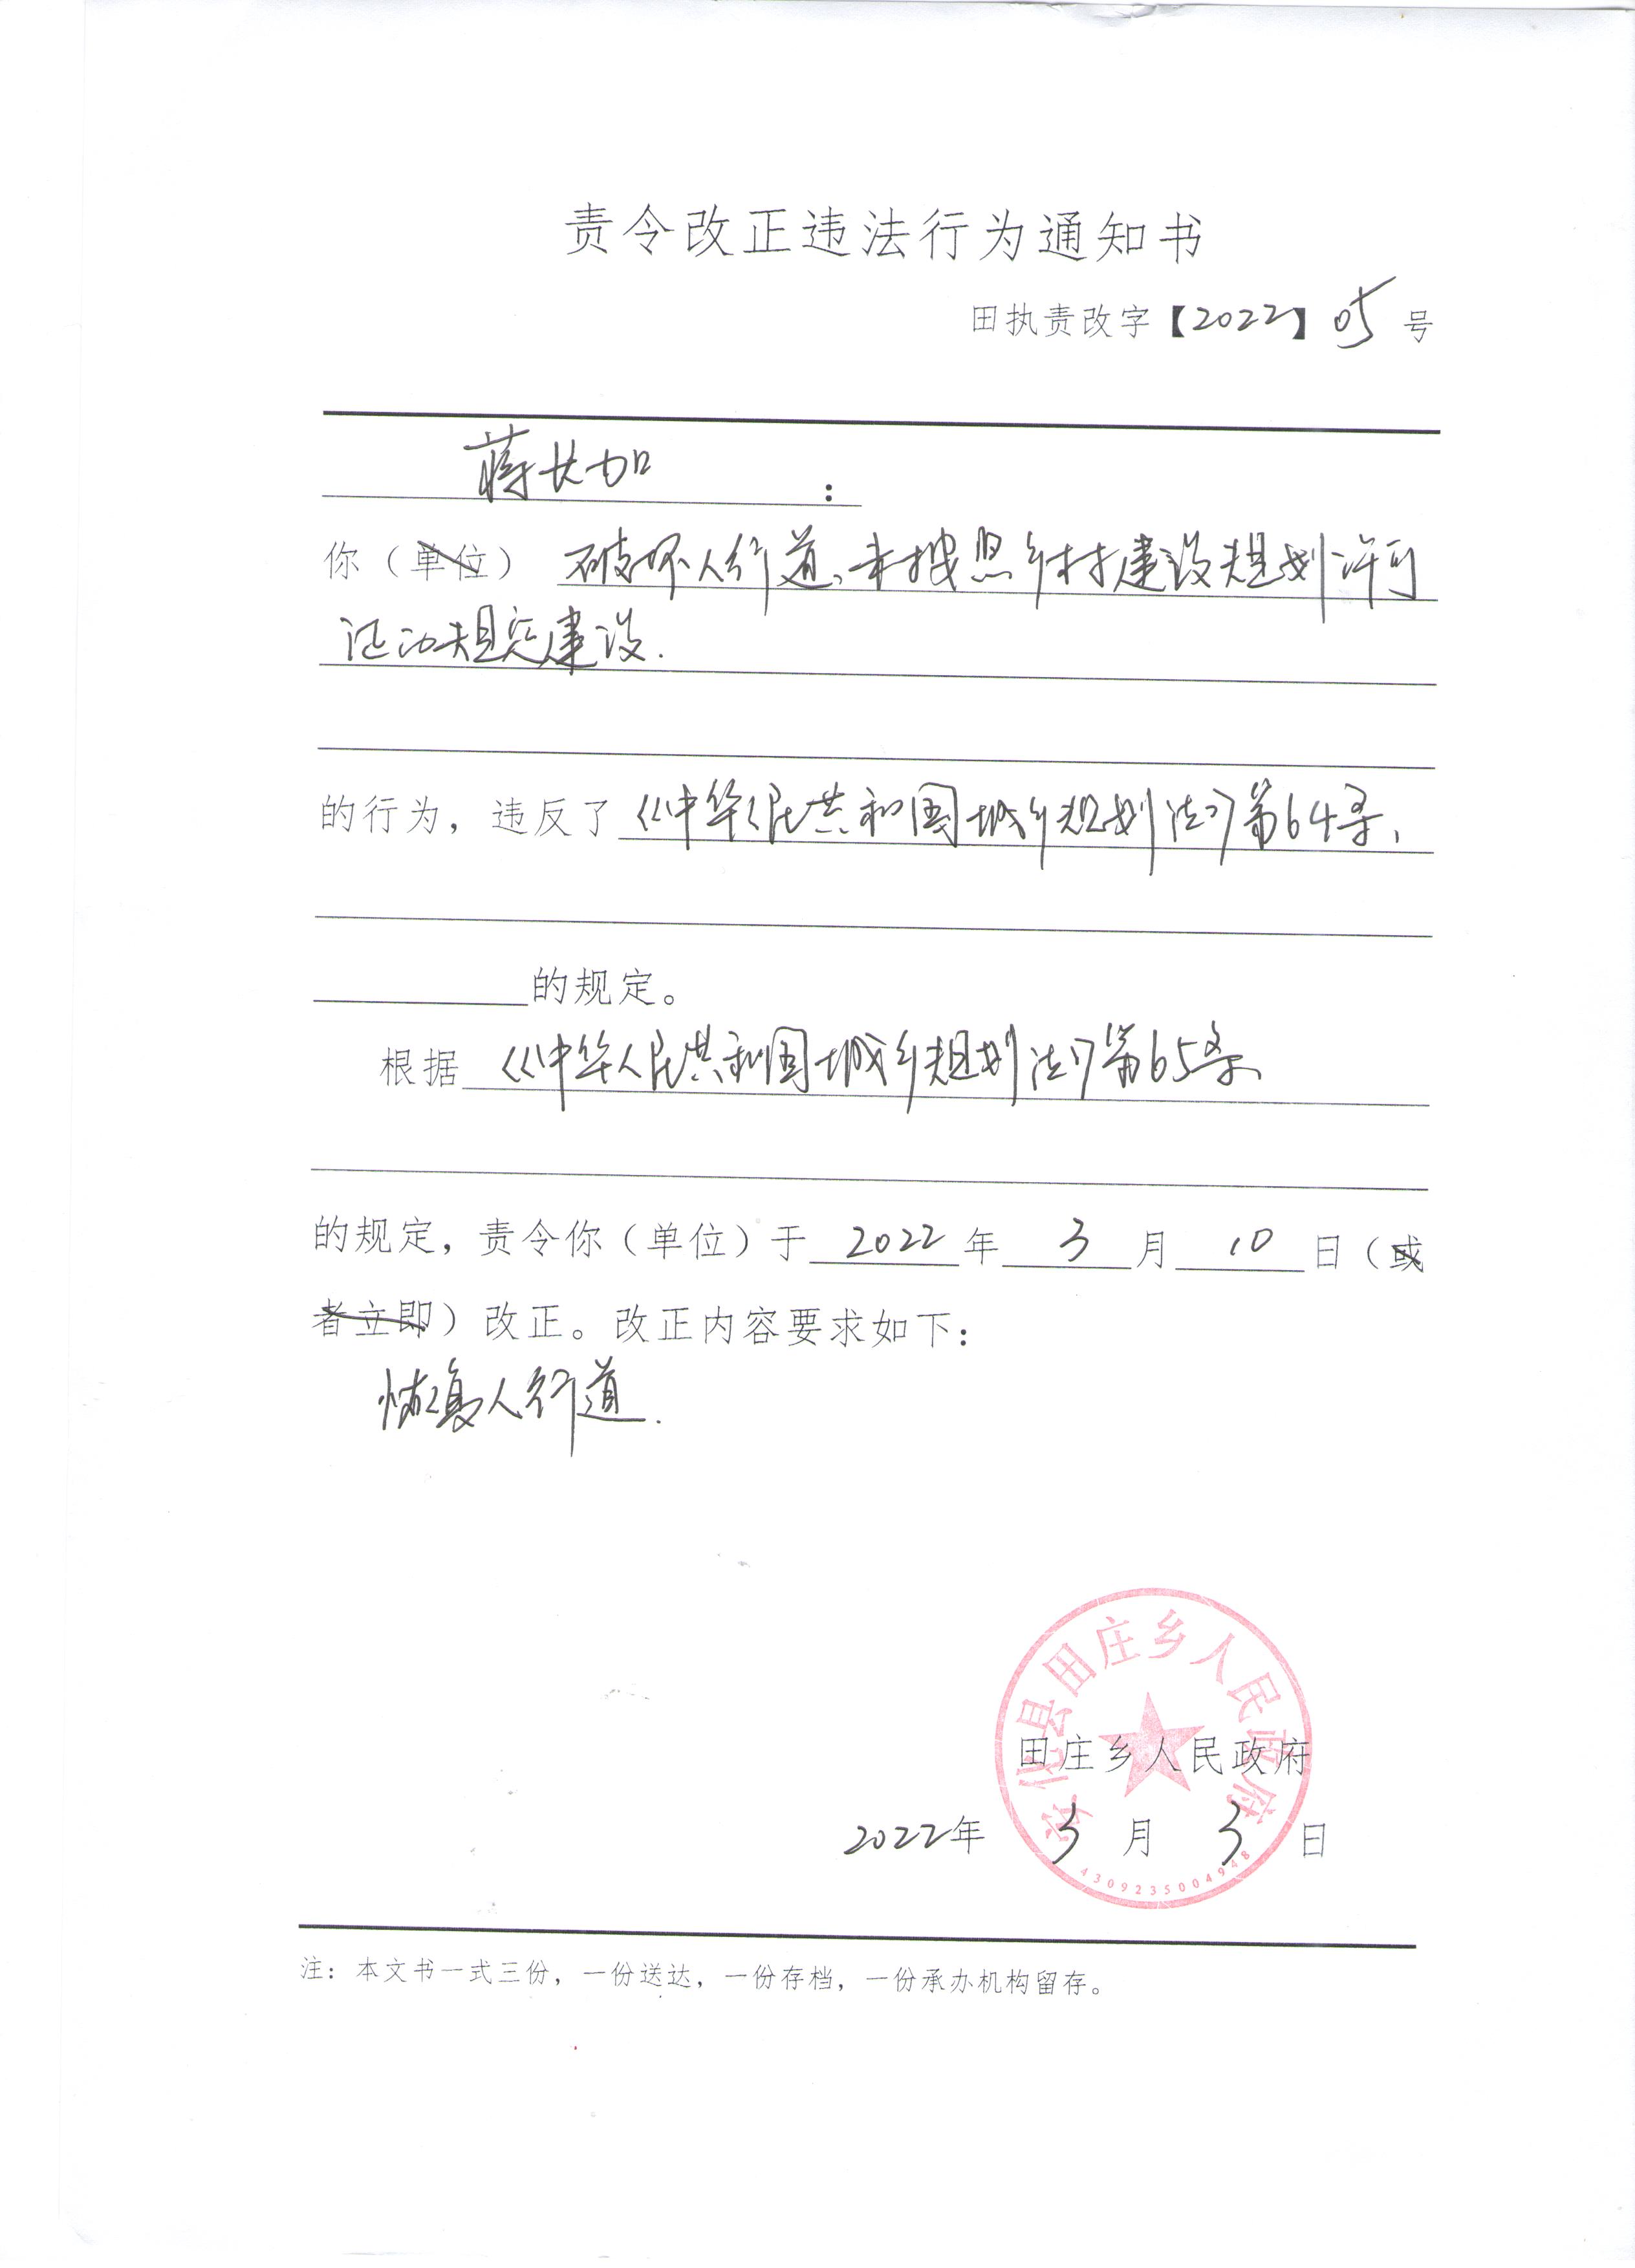 责令改正违法行为通知书
田执责改字【2022】05号
蒋长加：
你（单位）破坏人行道、未按照乡村建设规划许可
证的规定建设.
的行为，违反了《中华人民共和国城乡规划法》第64条、
的规定。
根据《中华人民共和国城乡规划法》第65条、
的规定，责令你（单位）于2022年3月10日（或
者立即）改正。改正内容要求如下：
恢复人行道.
安化县田庄乡人民政府
田庄乡人民政府
2022年3月3日
4309235004948
注：本文书一式三份，一份送达，一份存档，一份承办机构留存。